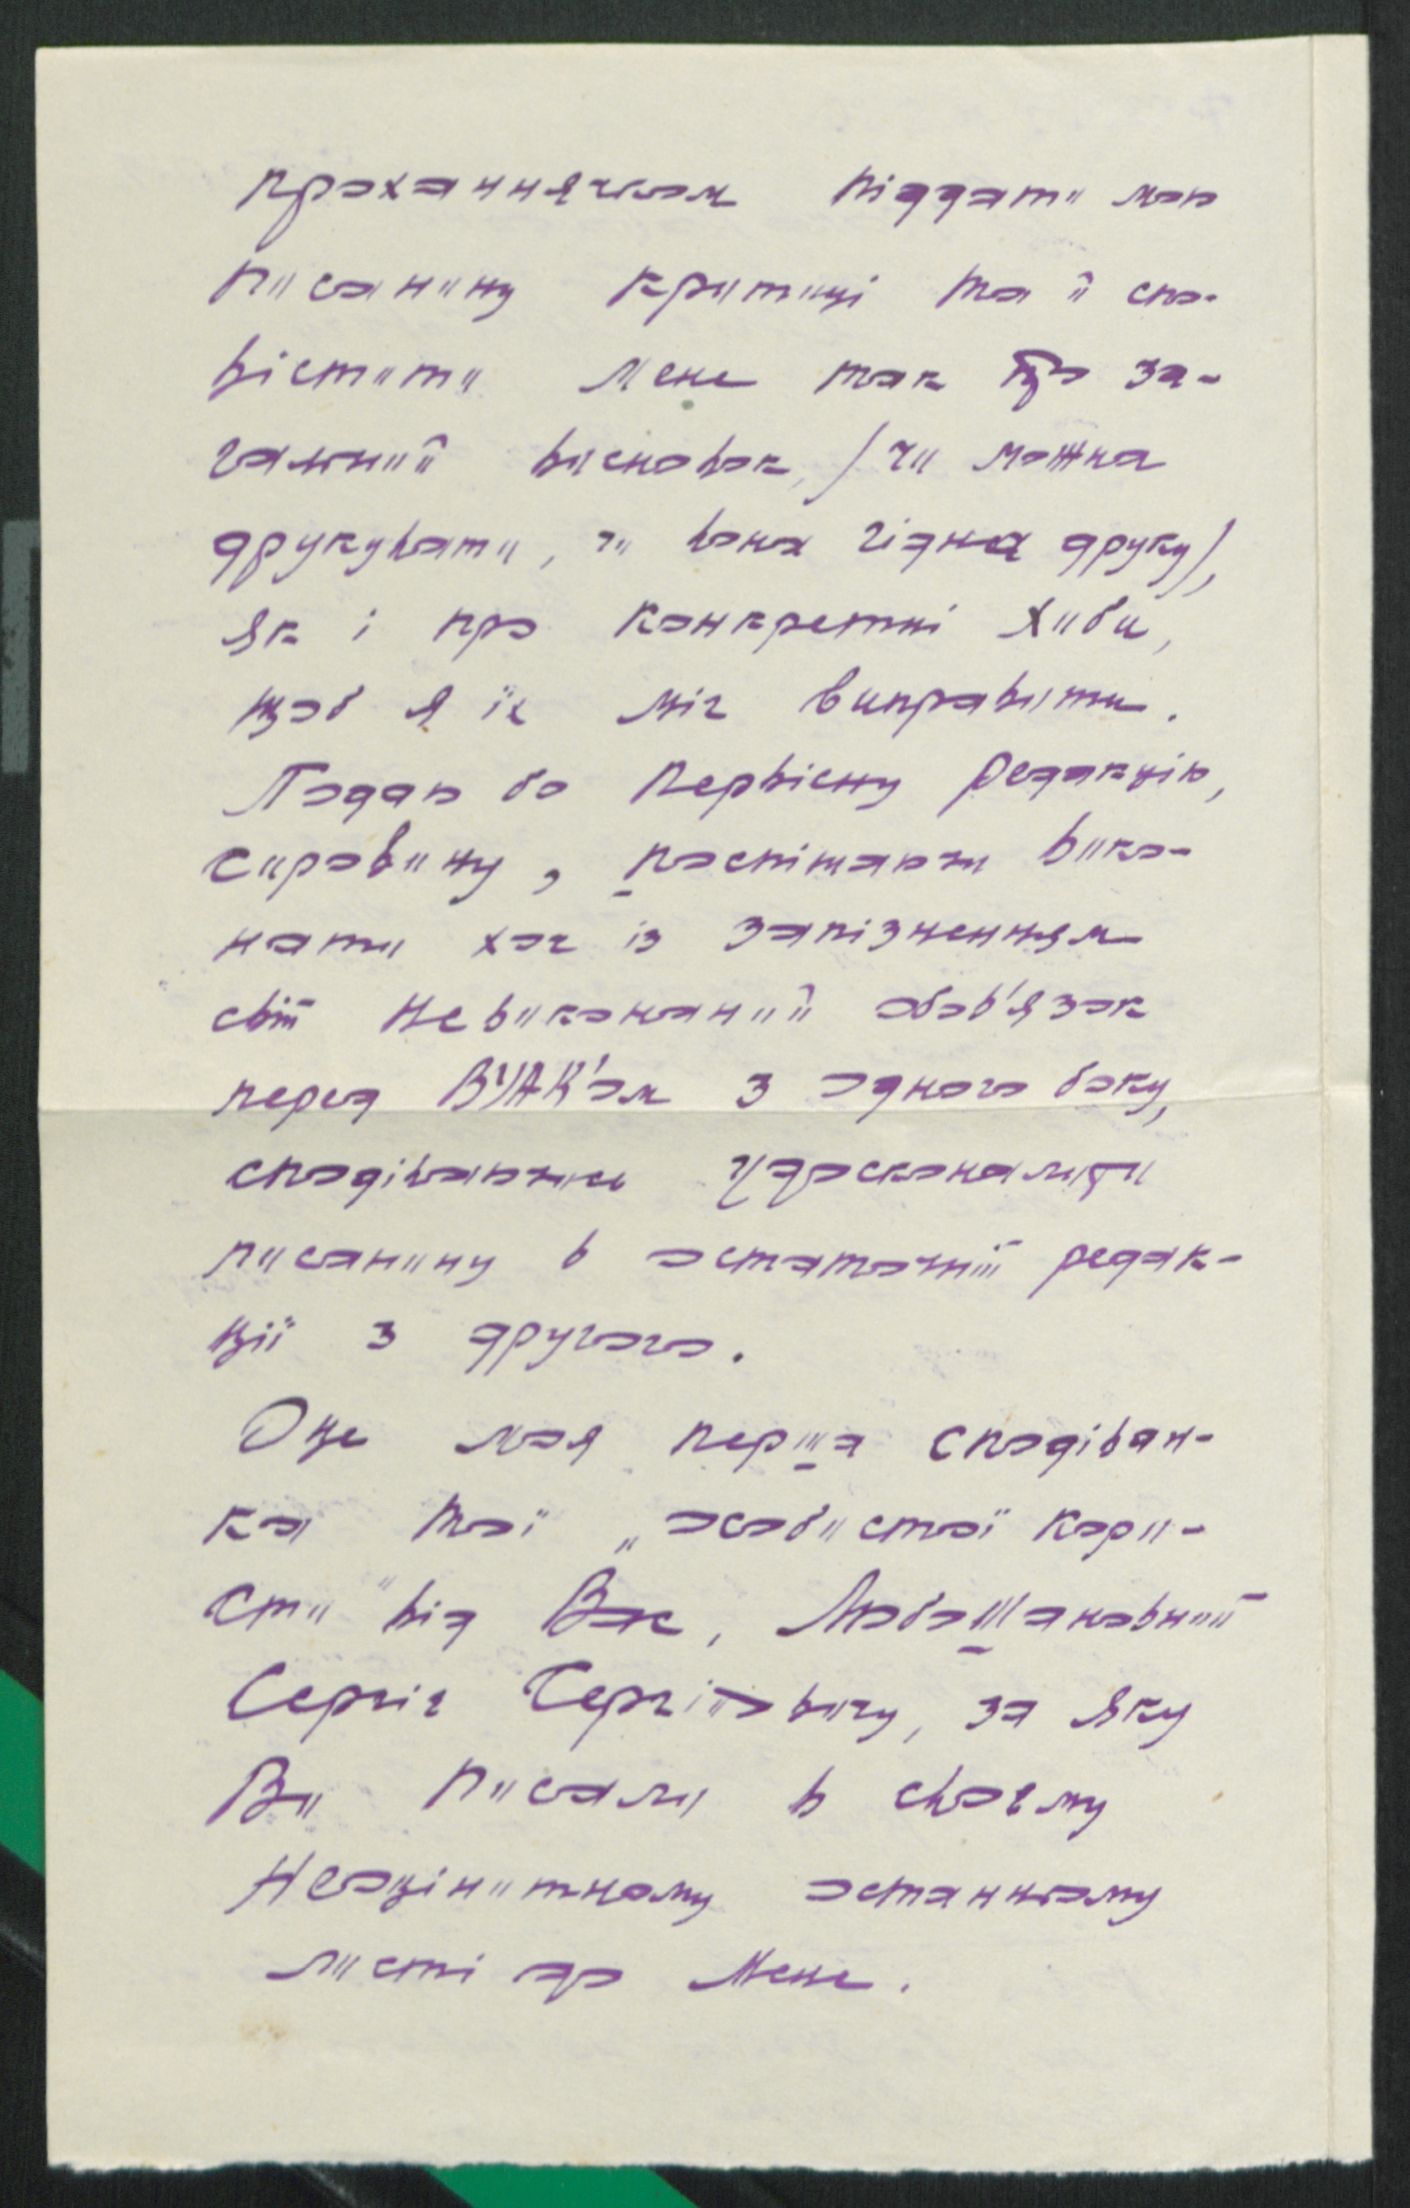 проханнячком піддати мою
писанину критиці та й спо-
вістити мене так про за-
гальний висновок, /чи можна
друкувати, чи вона гідна друку/,
як і про конкретні хиби,
щоб я їх міг виправити.
Подаю бо первісну редакцію,
сировину, поспішаючи вико-
нати хоч із запізненням
свій невиконаний обов'язок
перед ВУАК'ом з одного боку,
сподіваючись удосконалити
писанину в остаточній редак-
ції з другого.
Оце моя перша сподіван-
ка тої „особистої кори-
сти" від Вас, Любошановний
Сергію Сергійовичу, за яку
Ви писали в своєму
неоцінитному останньому
листі до мене.